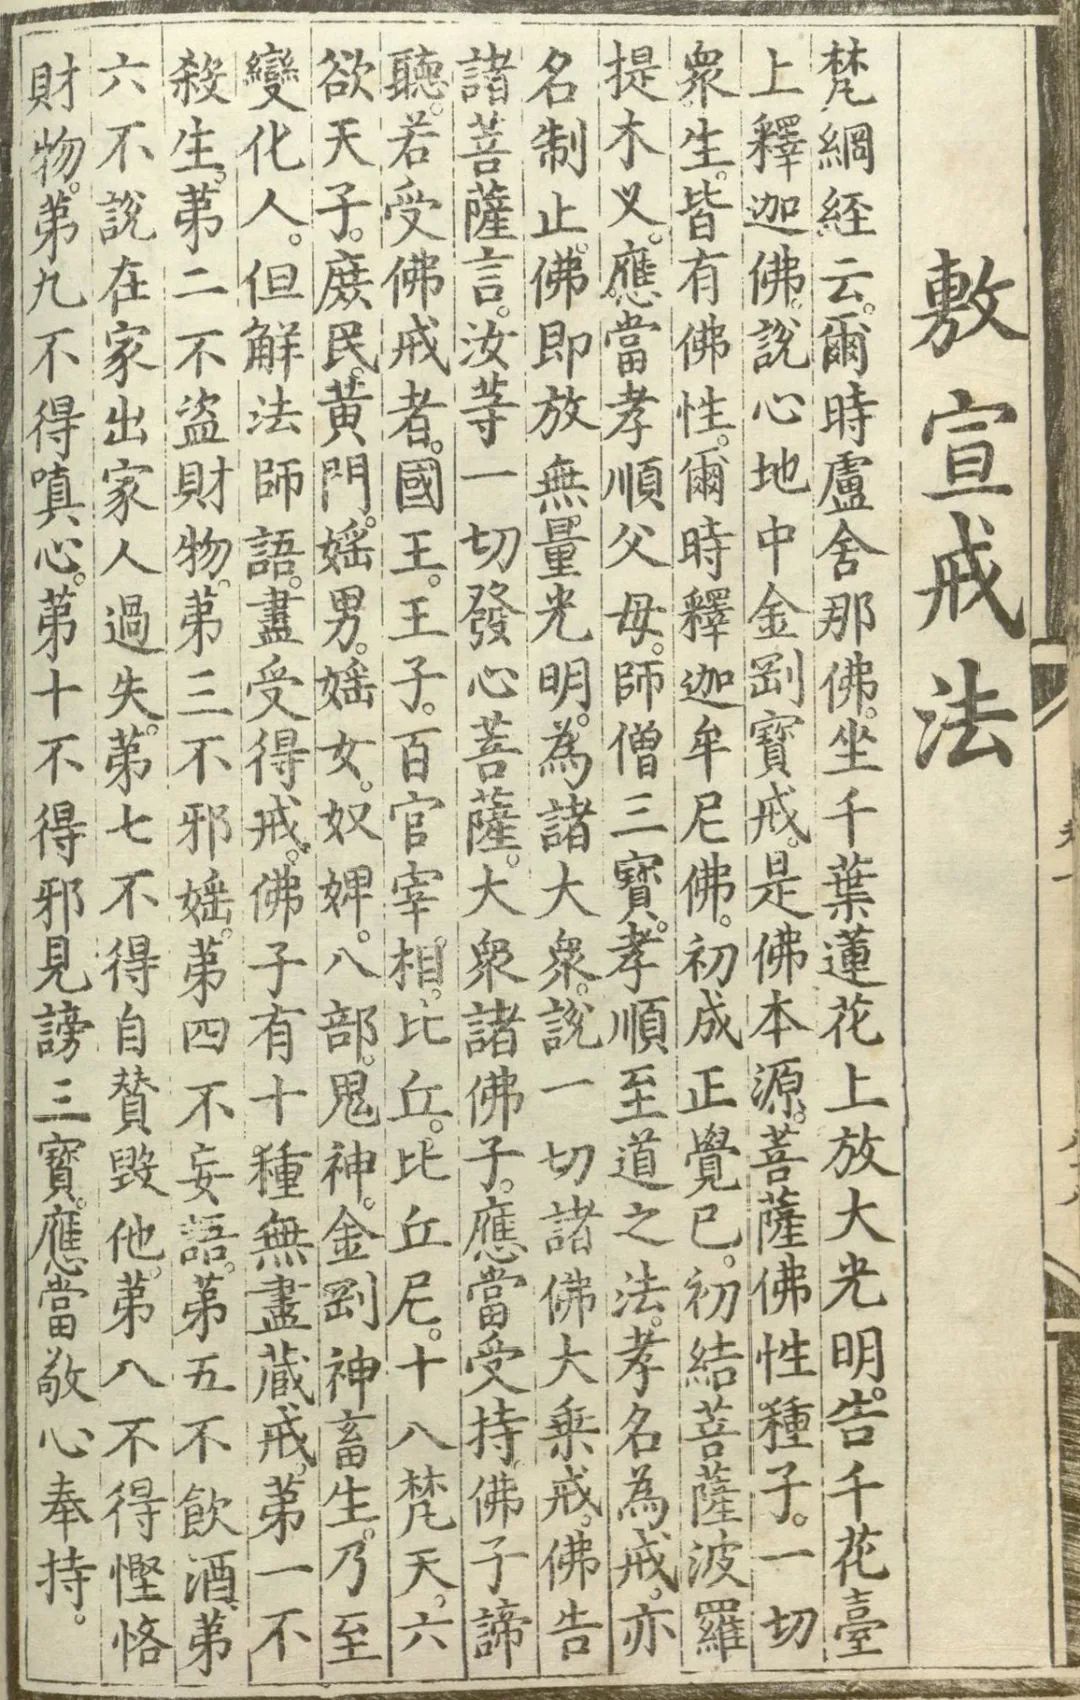 敷宣戒法
梵網経云。爾時盧舍那佛。坐千葉蓮花上放大光明。告千花臺
上釋迦佛。説心地中金剛寳戒。是佛本源。菩薩佛性種子。一切
衆生。皆有佛性。爾時釋迦牟尼佛。初成正覺已。初結菩薩波羅
提木义。應當孝順父母。師僧三寳。孝順至道之法。孝名為戒。亦
名制止。佛即放無量光明。為諸大衆。説一切諸佛大乗戒。佛告
諸菩薩言。汝等一切發心菩薩。大衆諸佛子。應當受持。佛子諦
聽。若受佛戒者。國王。王子。百官宰相。比丘。比丘尼。十八梵天。六
欲天子。庶民。黄門。婬男。婬女。奴婢。八部。鬼神。金剛神畜生。乃至
變化人。但解法師語。盡受得戒。佛子有十種無盡蔵戒。苐一不
殺生。苐二不盗財物。苐三不邪婬。苐四不妄語。苐五不飲酒。苐
六不説在家出家人過失。苐七不得自賛毀他。苐八不得慳悋
財物。苐九不得嗔心。苐十不得邪見謗三寳。應當敬心奉持。